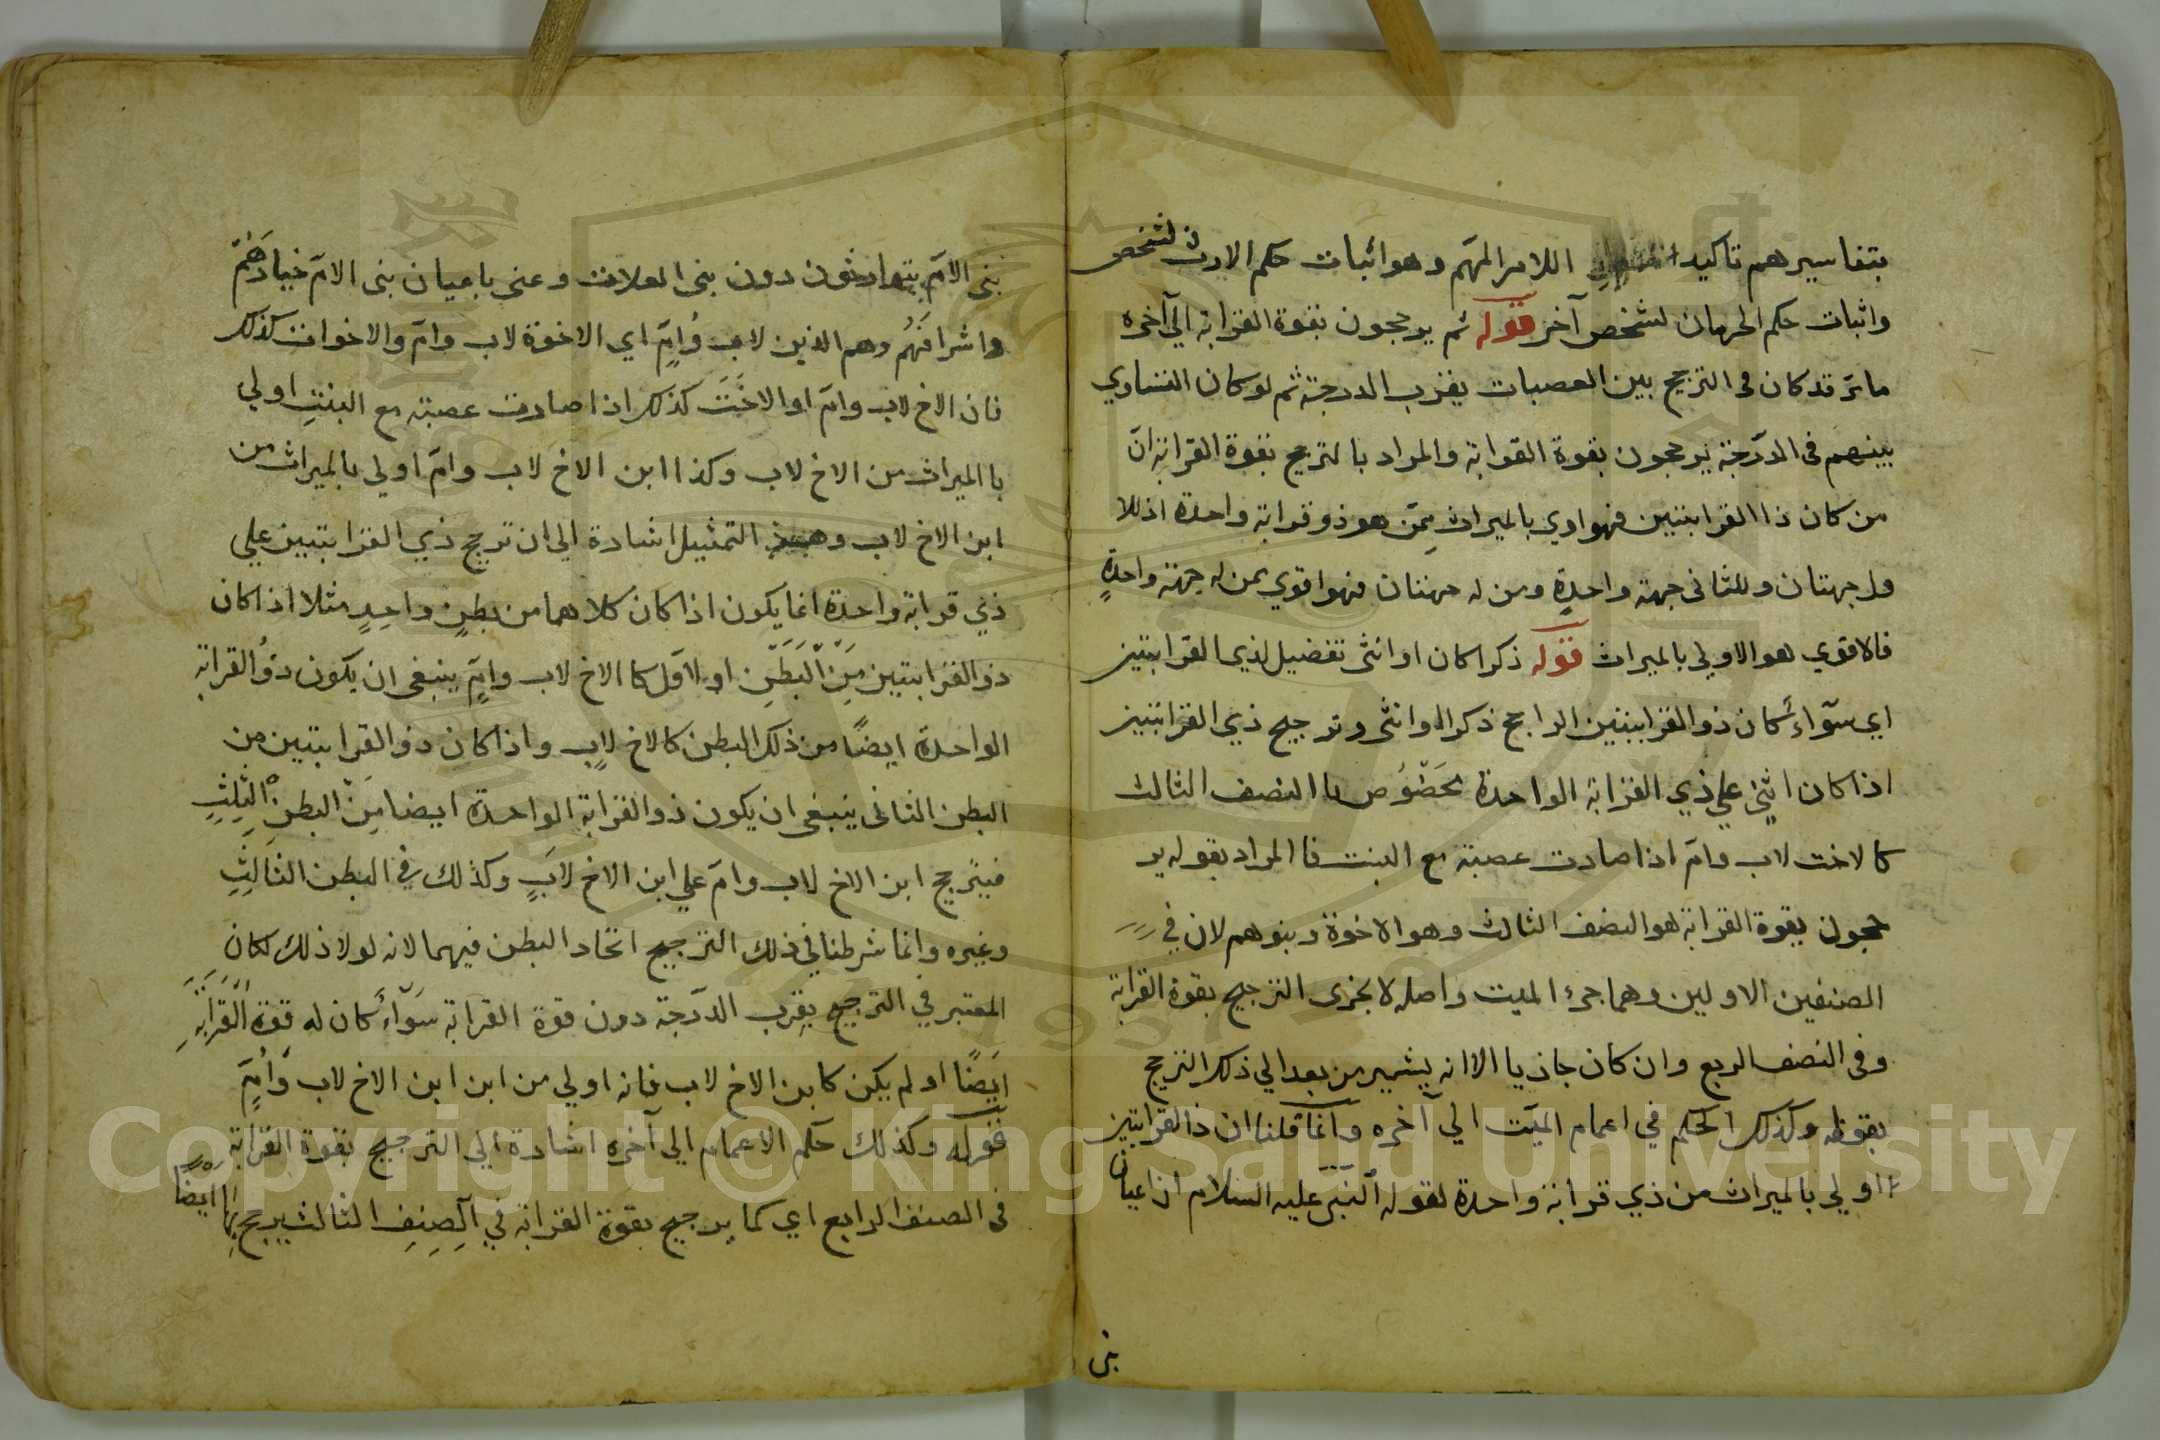 بتفاسيرهم تاكيدا اللامر المهم وهو اثبات حكم الارث لشخص
واثبات حكم الحرمان لشخص آخر قوله ثم يرجحون بقوة القرابة الي آخره
مامر قد كان في الترجيح بين العصبات بقرب الدرجة ثم لو كان التساوي
بينهم في الدرجة يرجحون بقوة القرابة والمراد بالترجيح بقوة القرابة ان
من كان ذا القرابتين فهو اولي بالميراث ممن هو ذو قرابة واحدة اذ للا
ول جهتان وللثاني جهة واحدة ومن له جهتان فهو اقوي ممن له جهة واحدة
فالاقوي هو الاولي بالميراث قوله ذكرا كان او انثى تفضيل لذي القرابتين
اي سوآء كان ذو القرابتين الراجح ذكرا او انثى وترجيح ذي القرابتين
اذا كان انثى علي ذي القرابة الواحدة مخصوص با الصنف الثالث
كالاخت لاب وام اذا صارت عصبة مع البنت فا المراد بقوله ير
جحون بقوة القرابة هو الصنف الثالث وهو الاخوة وبنوهم لان في
الصنفين الاولين وهما جزء الميت واصله لا يجزى الترجيح بقوة القرابة
وفي الصنف الربع وان كان جاريا الا انه يشير من بعد الي ذلك الترجيح
بقوله وكذلك الحكم في اعمام الميت الي آخره وانما قلنا ان ذا القرابتين
اولي بالميراث من ذي قرابة واحدة لقوله النبي عليه السلام ان اعيان
بنى
بنى الام يتوارثون دون بنى العلات وعنى باعيان بنى الام خيارهم
واشرافهم وهم الذين لاب وام اي الاخوة لاب وام والاخوات كذلك
فان الاخ لاب وام او الاخت كذلك اذا صارت عصبة مع البنت اولي
با الميراث من الاخ لاب وكذا ابن الاخ لاب وام اولي بالميراث من
ابن الاخ لاب التمثيل اشارة الي ان ترجيح ذي القرابتين علي
ذي قرابة واحدة انما يكون اذا كان كلاهما من بطن واحد مثلا اذا كان
ذو القرابتين من البطن اولاول كا الاخ لاب وام ينبغي ان يكون ذو القرابة
الواحدة ايضا من ذلك البطن كالاخ لاب واذا كان ذو القرابتين من
البطن الثاني ينبغي ان يكون ذو القرابة الواحدة ايضا من البطن الثلث
فيترجح ابن الاخ لاب وام علي ابن الاخ لاب وكذلك في البطن الثالث
وغيره وانما شرطنا في ذلك الترجيح اتحاد البطن فيهما لانه لولا ذلك لكان
المعتبر في الترجيح بقرب الدرجة دون قوة القرابة سوآء كان له قوة القرابة
ايضا او لم يكن كابن الاخ لاب فانه اولي من ابن ابن الاخ لاب وام
فقوله وكذلك حكم الاعمام الي آخره اشارة الي الترجيح بقوة القرابة
في الصنف الرابع اي كما يرجح بقوة القرابة في الصنف الثالث يرجح بها ايضا
Copyright © King Saud University
1957